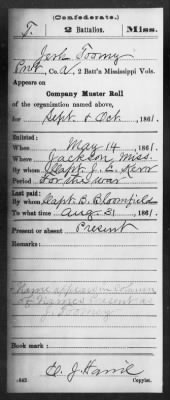 (Confederate.)
T. 2 Battalion. Miss.
Jerh Toomy
Pvt, Co. A, 2 Batt'n Mississippi Vols.
Appears on
Company Muster Roll
of the organization named above,
for Sept. & Oct., 1861.
Enlisted:
When May 14, 1861.
Where Jackson, Miss.
By whom Capt. J. E. Kerr
Period For the war
Last paid:
By whom Capt. B. Bloomfield
To what time Aug. 31, 1861.
Present or absent Present
Remarks:
Name appears in column
of Names Present as
J. Toomey
Book mark:
(642) Copyist.